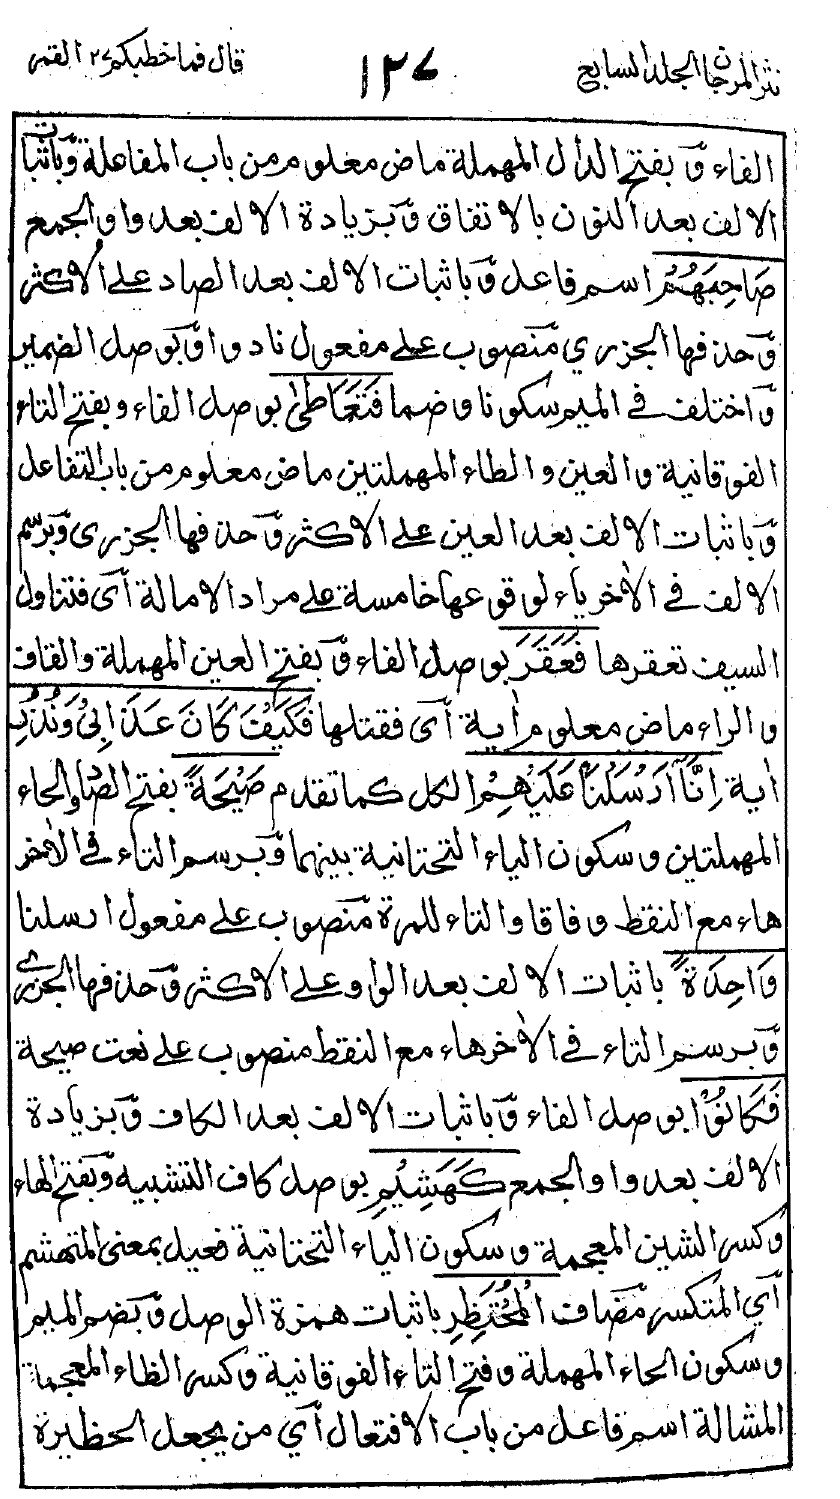 نثر المرجان الجلد السابع ١٢٧ قال فما خطبكم ٢٧ القمر
الفاء وَّ بفتح الدال المهملة ماض معلوم من باب المفاعلة وَّباثبات
الالف بعد النون بالاتفاق وَّبزيادة الالف بعد واو الجمع
صَاحِبَهُمْ اسم فاعل وَّباثبات الالف بعد الصاد على الاكثر
وَّحذفها الجزري مَّنصوب على مفعول نادوا وَّبوصل الضمير
وَّاختلف في الميم سكونا وضما فَتَعَاطٰى بوصل الفاء وبفتح التاء
الفوقانية والعين والطاء المهملتين ماض معلوم من باب التفاعل
وَّباثبات الالف بعد العين على الاكثر وَّحذفها الجزرى وَّبرسم
الالف في الاٰخر ياء لوقوعها خامسة على مراد الامالة اَى فتناول
السيف تعقرها فَعَقَرَ بوصل الفاء وَّبفتح العين المهملة والقاف
والراء ماض معلوم اٰية اَى فقتلها فَكَيْفَ كَانَ عَذَابِىْ وَنُذُرِ
اٰية اِنَّآ اَرْسَلْنَا عَلَيْهِمُ الكل كما تقدم صَيْحَةً بفتح الصاد والحاء
المهملتين وسكون الياء التحتانية بينهما وَّبرسم التاء في الاٰخر
هاء مع النقط وفاقا والتاء للمرة مَّنصوب على مفعول ارسلنا
وَاحِدَةً باثبات الالف بعد الواو على الاكثر وَّحذفها الجزرى
وَّبرسم التاء في الاٰخر هاء مع النقط منصوب على نعت صيحة
فَكَانُوْا بوصل الفاء وَّباثبات الالف بعد الكاف وَّبزيادة
الالف بعد واو الجمع كَهَشِيْمِ بوصل كاف التشبيه وَّبفتح الهاء
وكسر الشين المعجمة وسكون الياء التحتانية فعيل بمعنى المتهشم
اَي المتكسر مَّضاف الْمُحْتَظِرِ باثبات همزة الوصل وَّبضم الميم
وسكون الحاء المهملة وفتح التاء الفوقانية وكسر الظاء المعجمة
المشالة اسم فاعل من باب الافتعال اَي من يجعل الحظيرة